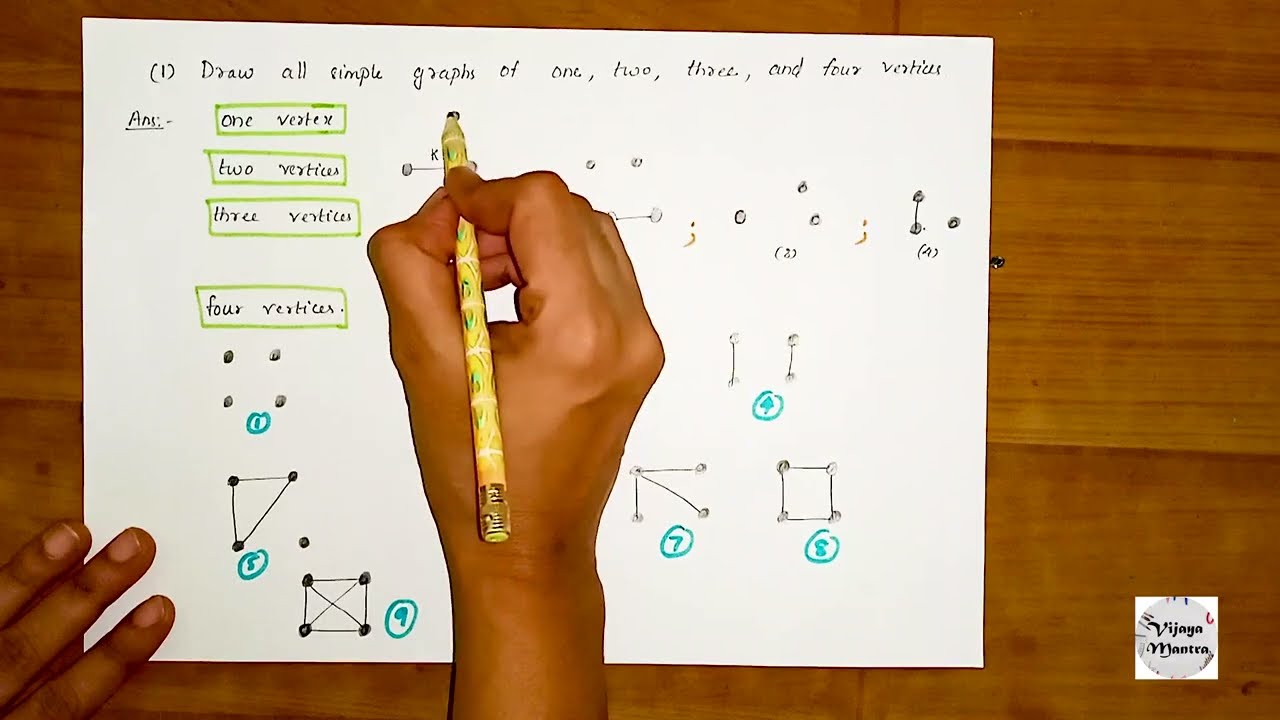 (1) Draw all simple graphs of one, two, three, and four vertices
Ans:- one vertex
K
two vertices
three vertices ; ;
(3) (4)
four vertices.
1 4
5 7 8
9
Vijaya
Mantra